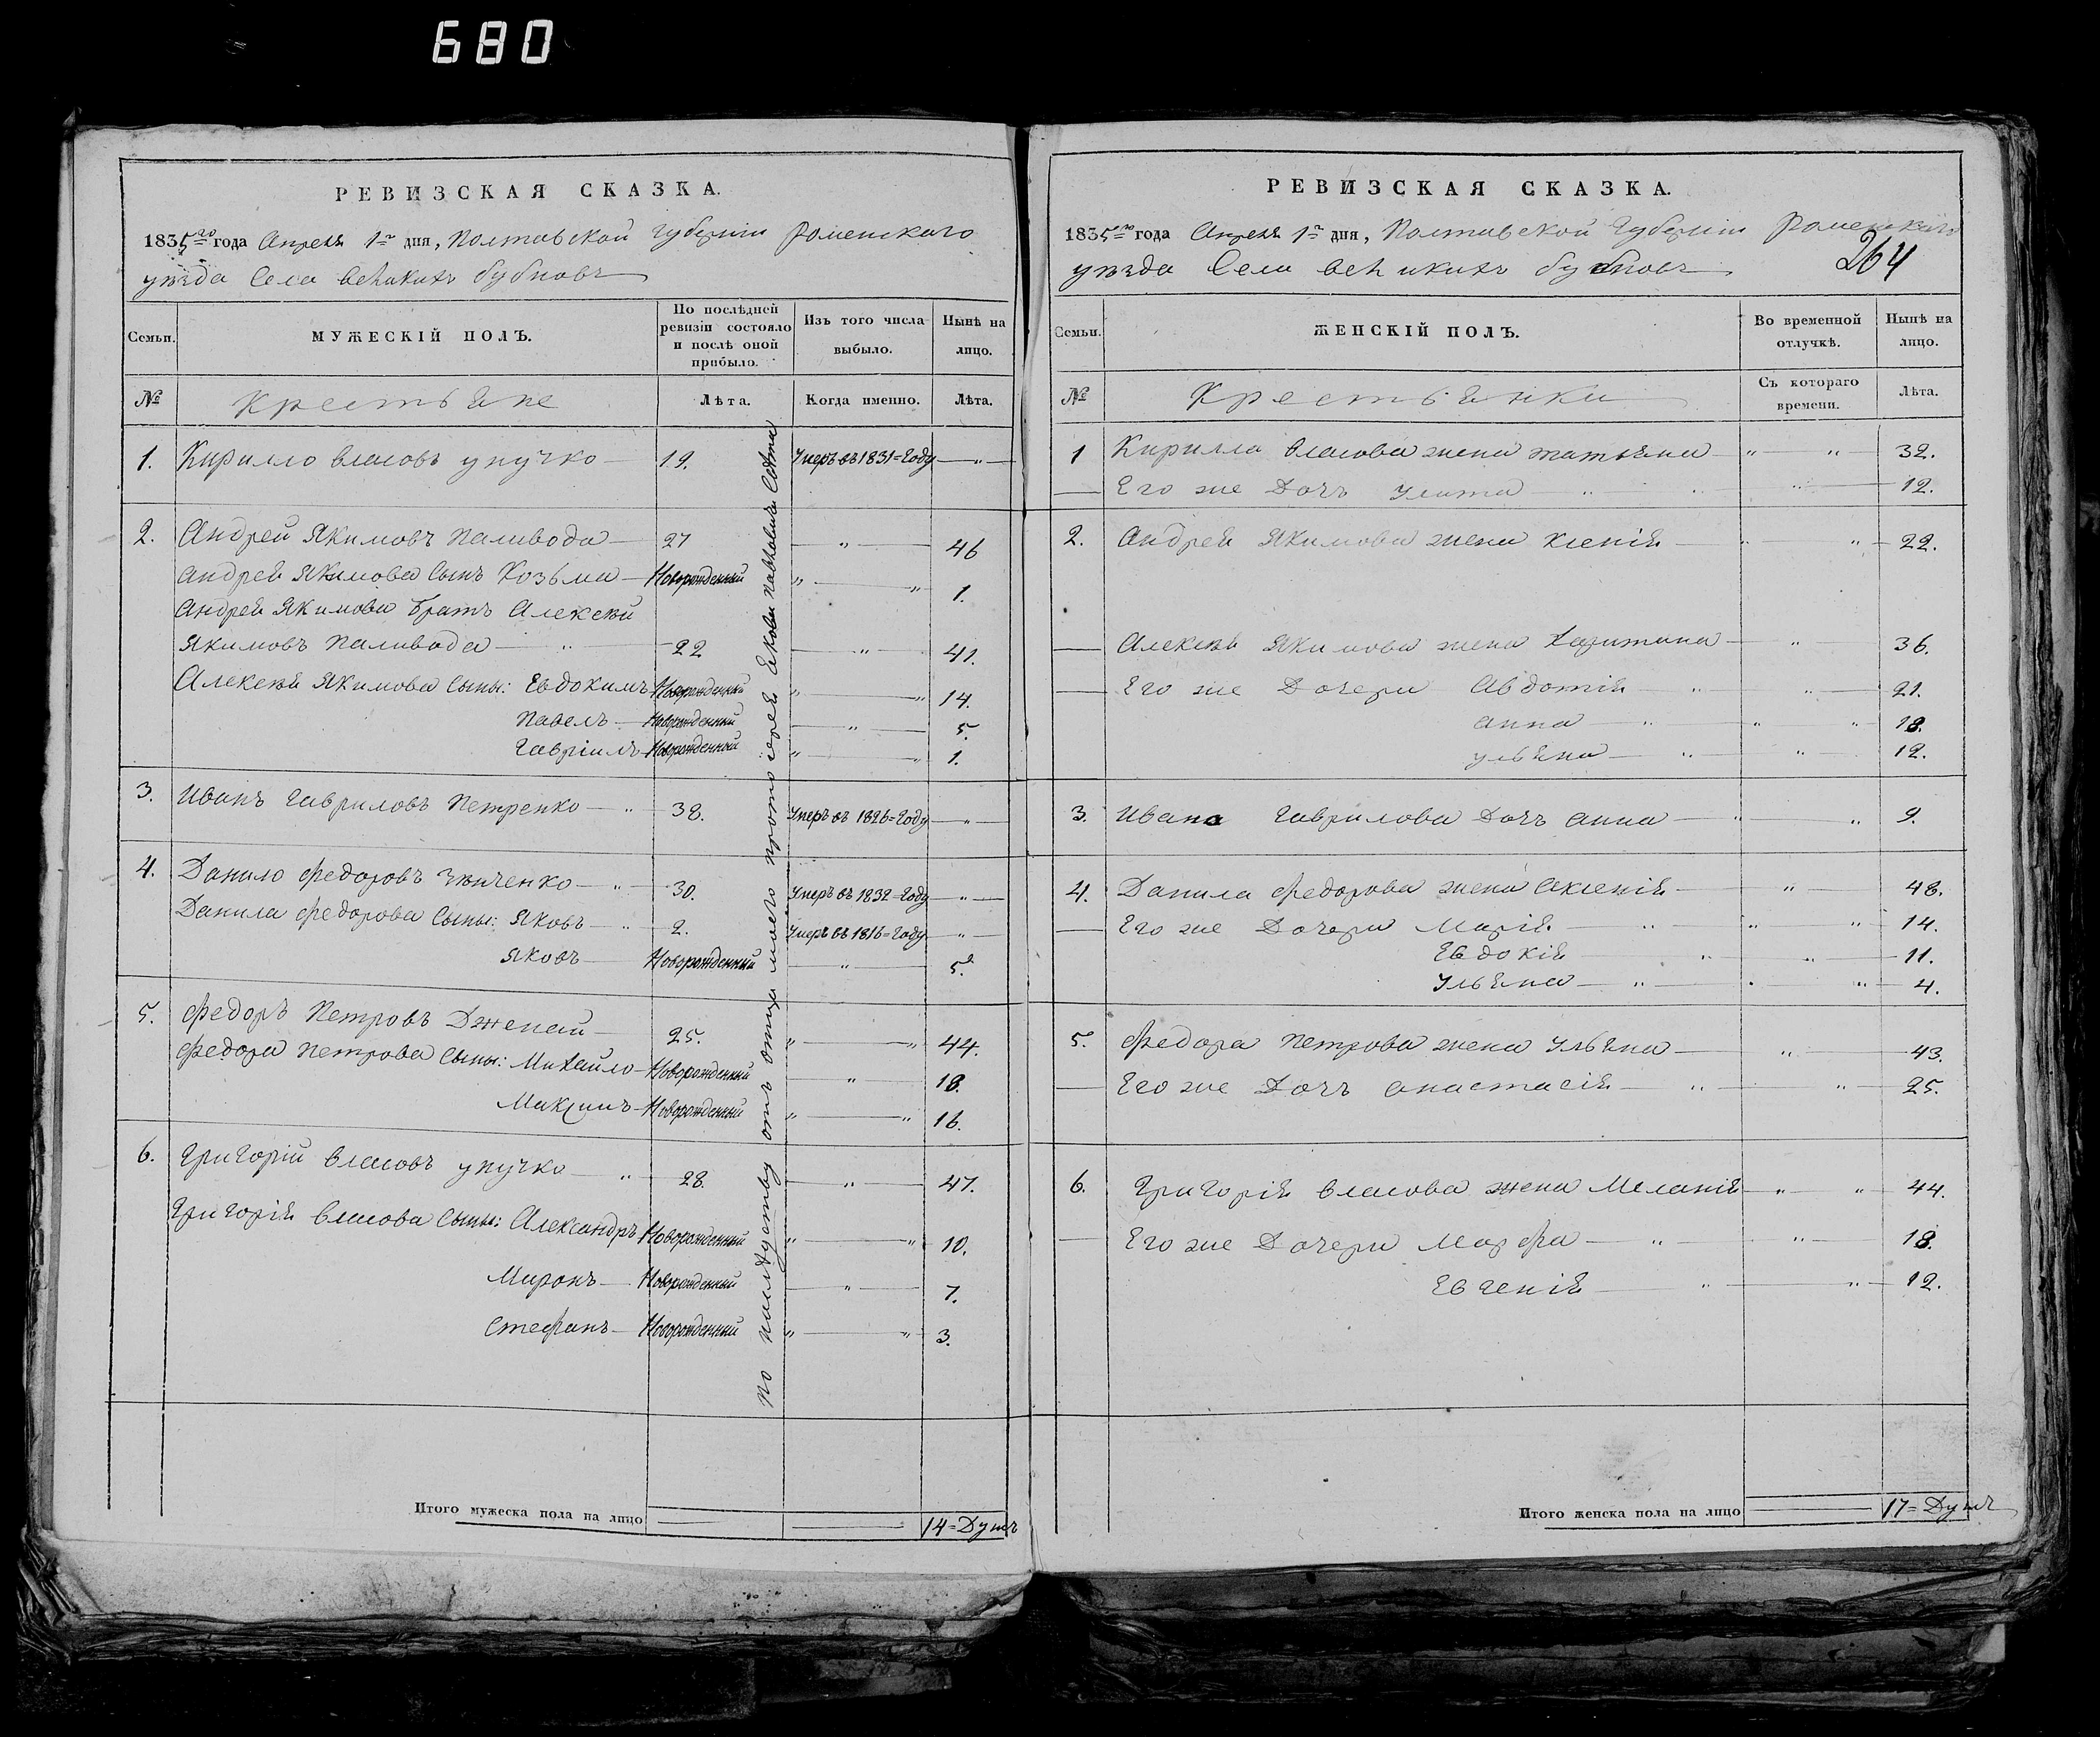 680
РЕВИЗСКАЯ СКАЗКА.
1835го года Апреля 1го дня, Полтавской Губернiи Роменского
уезда Села великихъ бубновъ
Семьи. МУЖЕСКIЙ ПОЛЪ. По послѣдней ревизiи состояло и послѣ оной прибыло. Изъ того числа выбыло. Нынѣ на лицо.
№ Крестьяне Лѣта. Когда именно. Лѣта.
1. Кирилло власовъ упучко 19. Умеръ въ 1831=Году
2. Андрей Якимовъ паливода 27 46
Андрея Якимова Сынъ Козьма Новорожденный 1.
Андрея Якимова братъ Алексѣй
Якимовъ паливода 22 41.
Алексѣя Якимова Сыны: Евдокимъ Новорожденный 14.
павелъ Новорожденный 5.
Гаврiилъ Новорожденный 1.
3. Иванъ Гавриловъ петренко 38. Умеръ въ 1826=Году
4. Данило Федоровъ 30. Умеръ въ 1832=Году
Данила Федорова Сыны: Яковъ 2. Умеръ въ 1816=Году
Яковъ Новорожденный 5.
5. Федоръ Петровъ Джепай 25. 44.
Федора петрова Сыны: Михаило Новорожденный 18.
Максимъ Новорожденный 16.
6. Григорiй власовъ упучко 28. 47.
Григорiя власова Сыны: Александръ Новорожденный 10.
Миронъ Новорожденный 7.
Стефанъ Новорожденный 3.
отъ отца моего протоiерея Якова павловича
Итого мужеска пола на лицо 14=Душъ
РЕВИЗСКАЯ СКАЗКА.
1835го года Апреля 1го дня, Полтавской Губернiи Роменского
уезда Села великихъ бубновъ 264
Семьи. ЖЕНСКIЙ ПОЛЪ. Во временной отлучкѣ. Нынѣ на лицо.
№ Крестьянки Съ котораго времени. Лѣта.
1 Кирилла власова жена татьяна 32.
Его же Дочь Улита 12.
2. Андрея Якимова жена ксенiя 22.
Алексѣя Якимова жена Харитина 36.
Его же Дочери Авдотiя 21.
анна 18.
ульяна 12.
3. Ивана Гаврилова Дочь анна 9.
4. Данила Федорова жена Аксенiя 48.
Его же Дочери Марiя 14.
Евдокiя 11.
Ульяна 4.
5. Федора Петрова жена Ульяна 43.
Его же Дочь анастасiя 25.
6. Григорiя власова жена Меланiя 44.
Его же Дочери Марфа 18.
Евгенiя 12.
Итого женска пола на лицо 17=Душъ